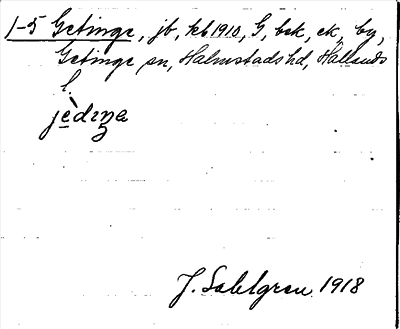 1-5 Getinge, jb, kb 1910, G, bsk, ek, by,
Getinge sn, Halmstads hd, Hallands
l.
jèdɪŋɐ
J. Sahlgren 1918